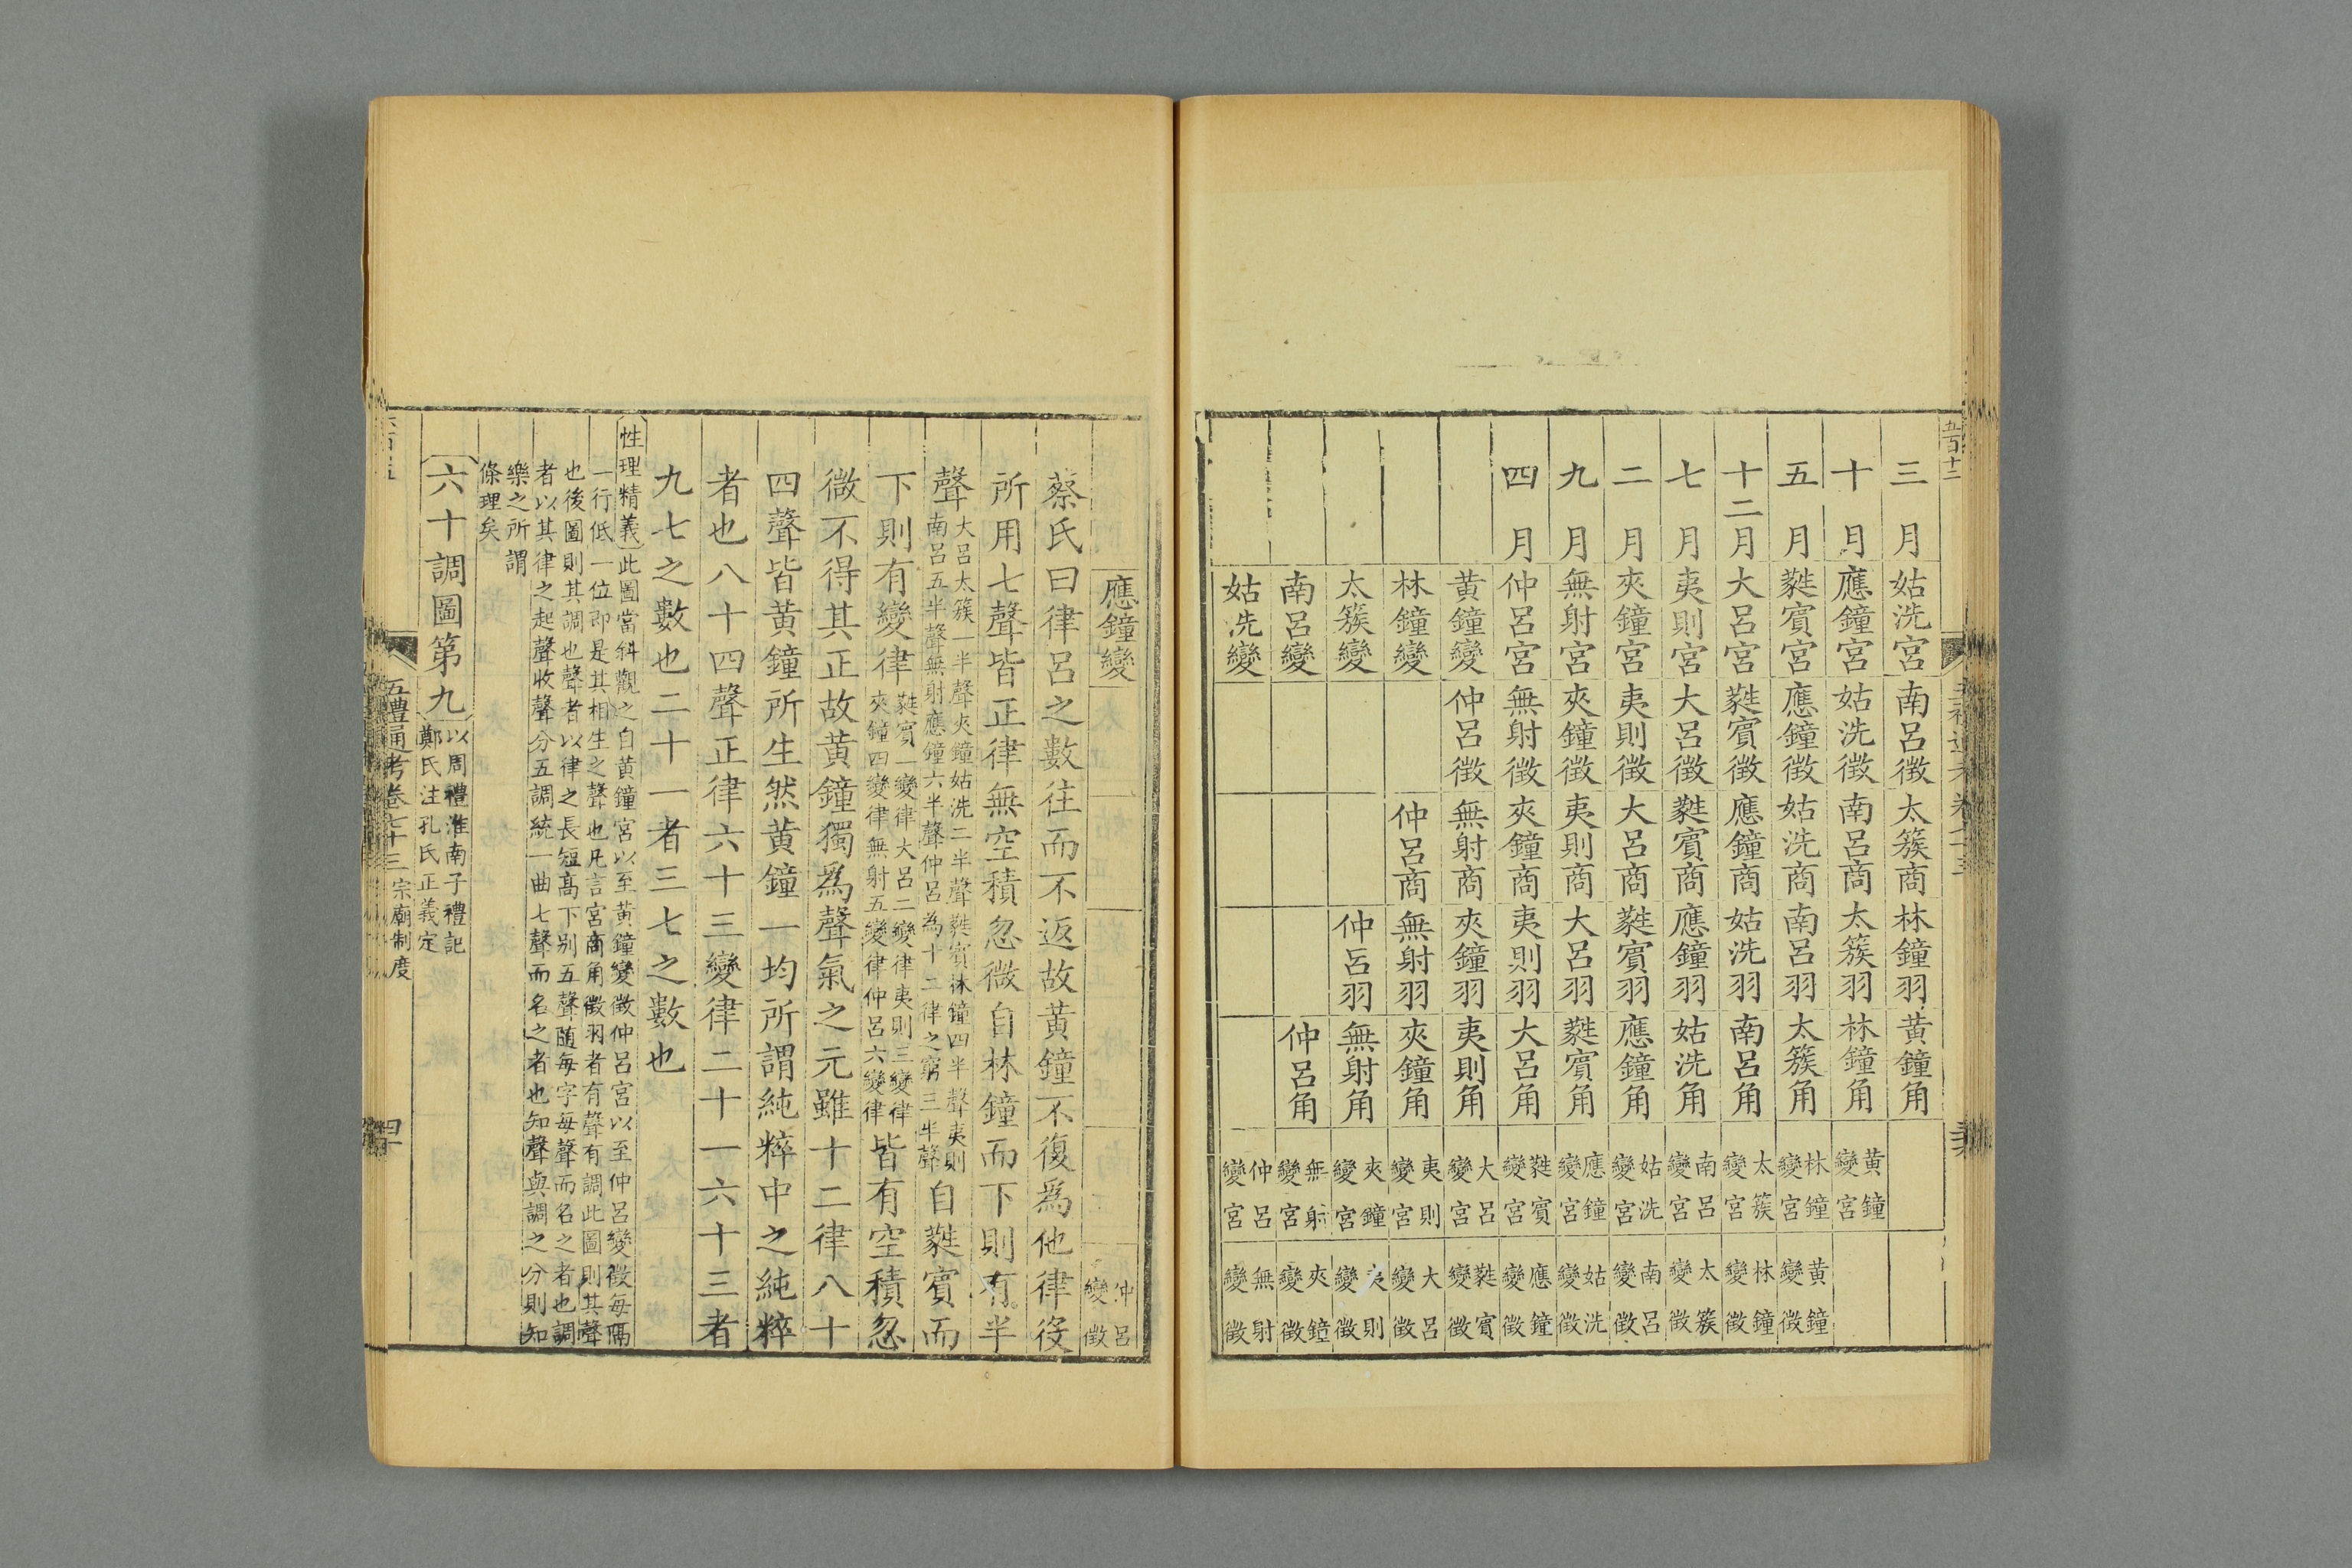 三月姑洗宮南呂徵太簇商林鐘羽黃鐘角
十月應鐘宮姑洗徵南呂商太簇羽林鐘角黃鐘變宮
五月蕤賓宮應鐘徵姑洗商南呂羽太簇角林鐘變宮黃鐘變徵
十二月大呂宮蕤賓徵應鐘商姑洗羽南呂角太簇變宮林鐘變徵
七月夷則宮大呂徵蕤賓商應鐘羽姑洗角南呂變宮太簇變徵
二月夾鐘宮夷則徵大呂商蕤賓羽應鐘角姑洗變宮南呂變徵
九月無射宮夾鐘徵夷則商大呂羽蕤賓角應鐘變宮姑洗變徵
四月仲呂宮無射徵夾鐘商夷則羽大呂角蕤賓變宮應鐘變徵
黃鐘變仲呂徵無射商夾鐘羽夷則角大呂變宮蕤賓變徵
林鐘變仲呂商無射羽夾鐘角夷則變宮大呂變徵
太簇變仲呂羽無射角夾鐘變宮夷則變徵
南呂變仲呂角無射變宮夾鐘變徵
姑洗變仲呂變宮無射變徵
應鐘變仲呂變徵
蔡氏曰律呂之數往而不返故黃鐘不復爲他律役
所用七聲皆正律無空積忽微自林鐘而下則有半
聲大呂太簇一半聲夾鐘姑洗二半聲蕤賓林鐘四半聲夷則
南呂五半聲無射應鐘六半聲仲呂為十二律之窮三半聲自蕤賓而
下則有變律蕤賓一變律大呂二變律夷則三變律
夾鐘四變律無射五變律仲呂六變律皆有空積忽
微不得其正故黃鐘獨爲聲氣之元雖十二律八十
四聲皆黃鐘所生然黃鐘一均所謂純粹中之純粹
者也八十四聲正律六十三變律二十一六十三者
九七之數也二十一者三七之數也
性理精義此圖當斜觀之自黃鐘宮以至黃鐘變徵仲呂宮以至仲呂變徵每隔
一行低一位卽是其相生之聲也凡言宮商角徵羽者有聲有調此圖則其聲
也後圖則其調也聲者以律之長短高下别五聲隨每字每聲而名之者也調
者以其律之起聲收聲分五調統一曲七聲而名之者也知聲與調之分則知
樂之所謂
條理矣
六十調圖第九以周禮淮南子禮記
鄭氏注孔氏正義定
五禮通考卷七十三 宗廟制度